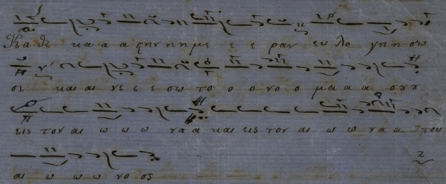 Καθε κα α α α την η η με ε ε ραν ευ λο γη η σω
σε και αι νε ε ε σω το ο ο νο ο μα α α σου
εις τον αι ω ω ω να α και εις τον αι ω ω να α του
αι ω ω ω νο ος